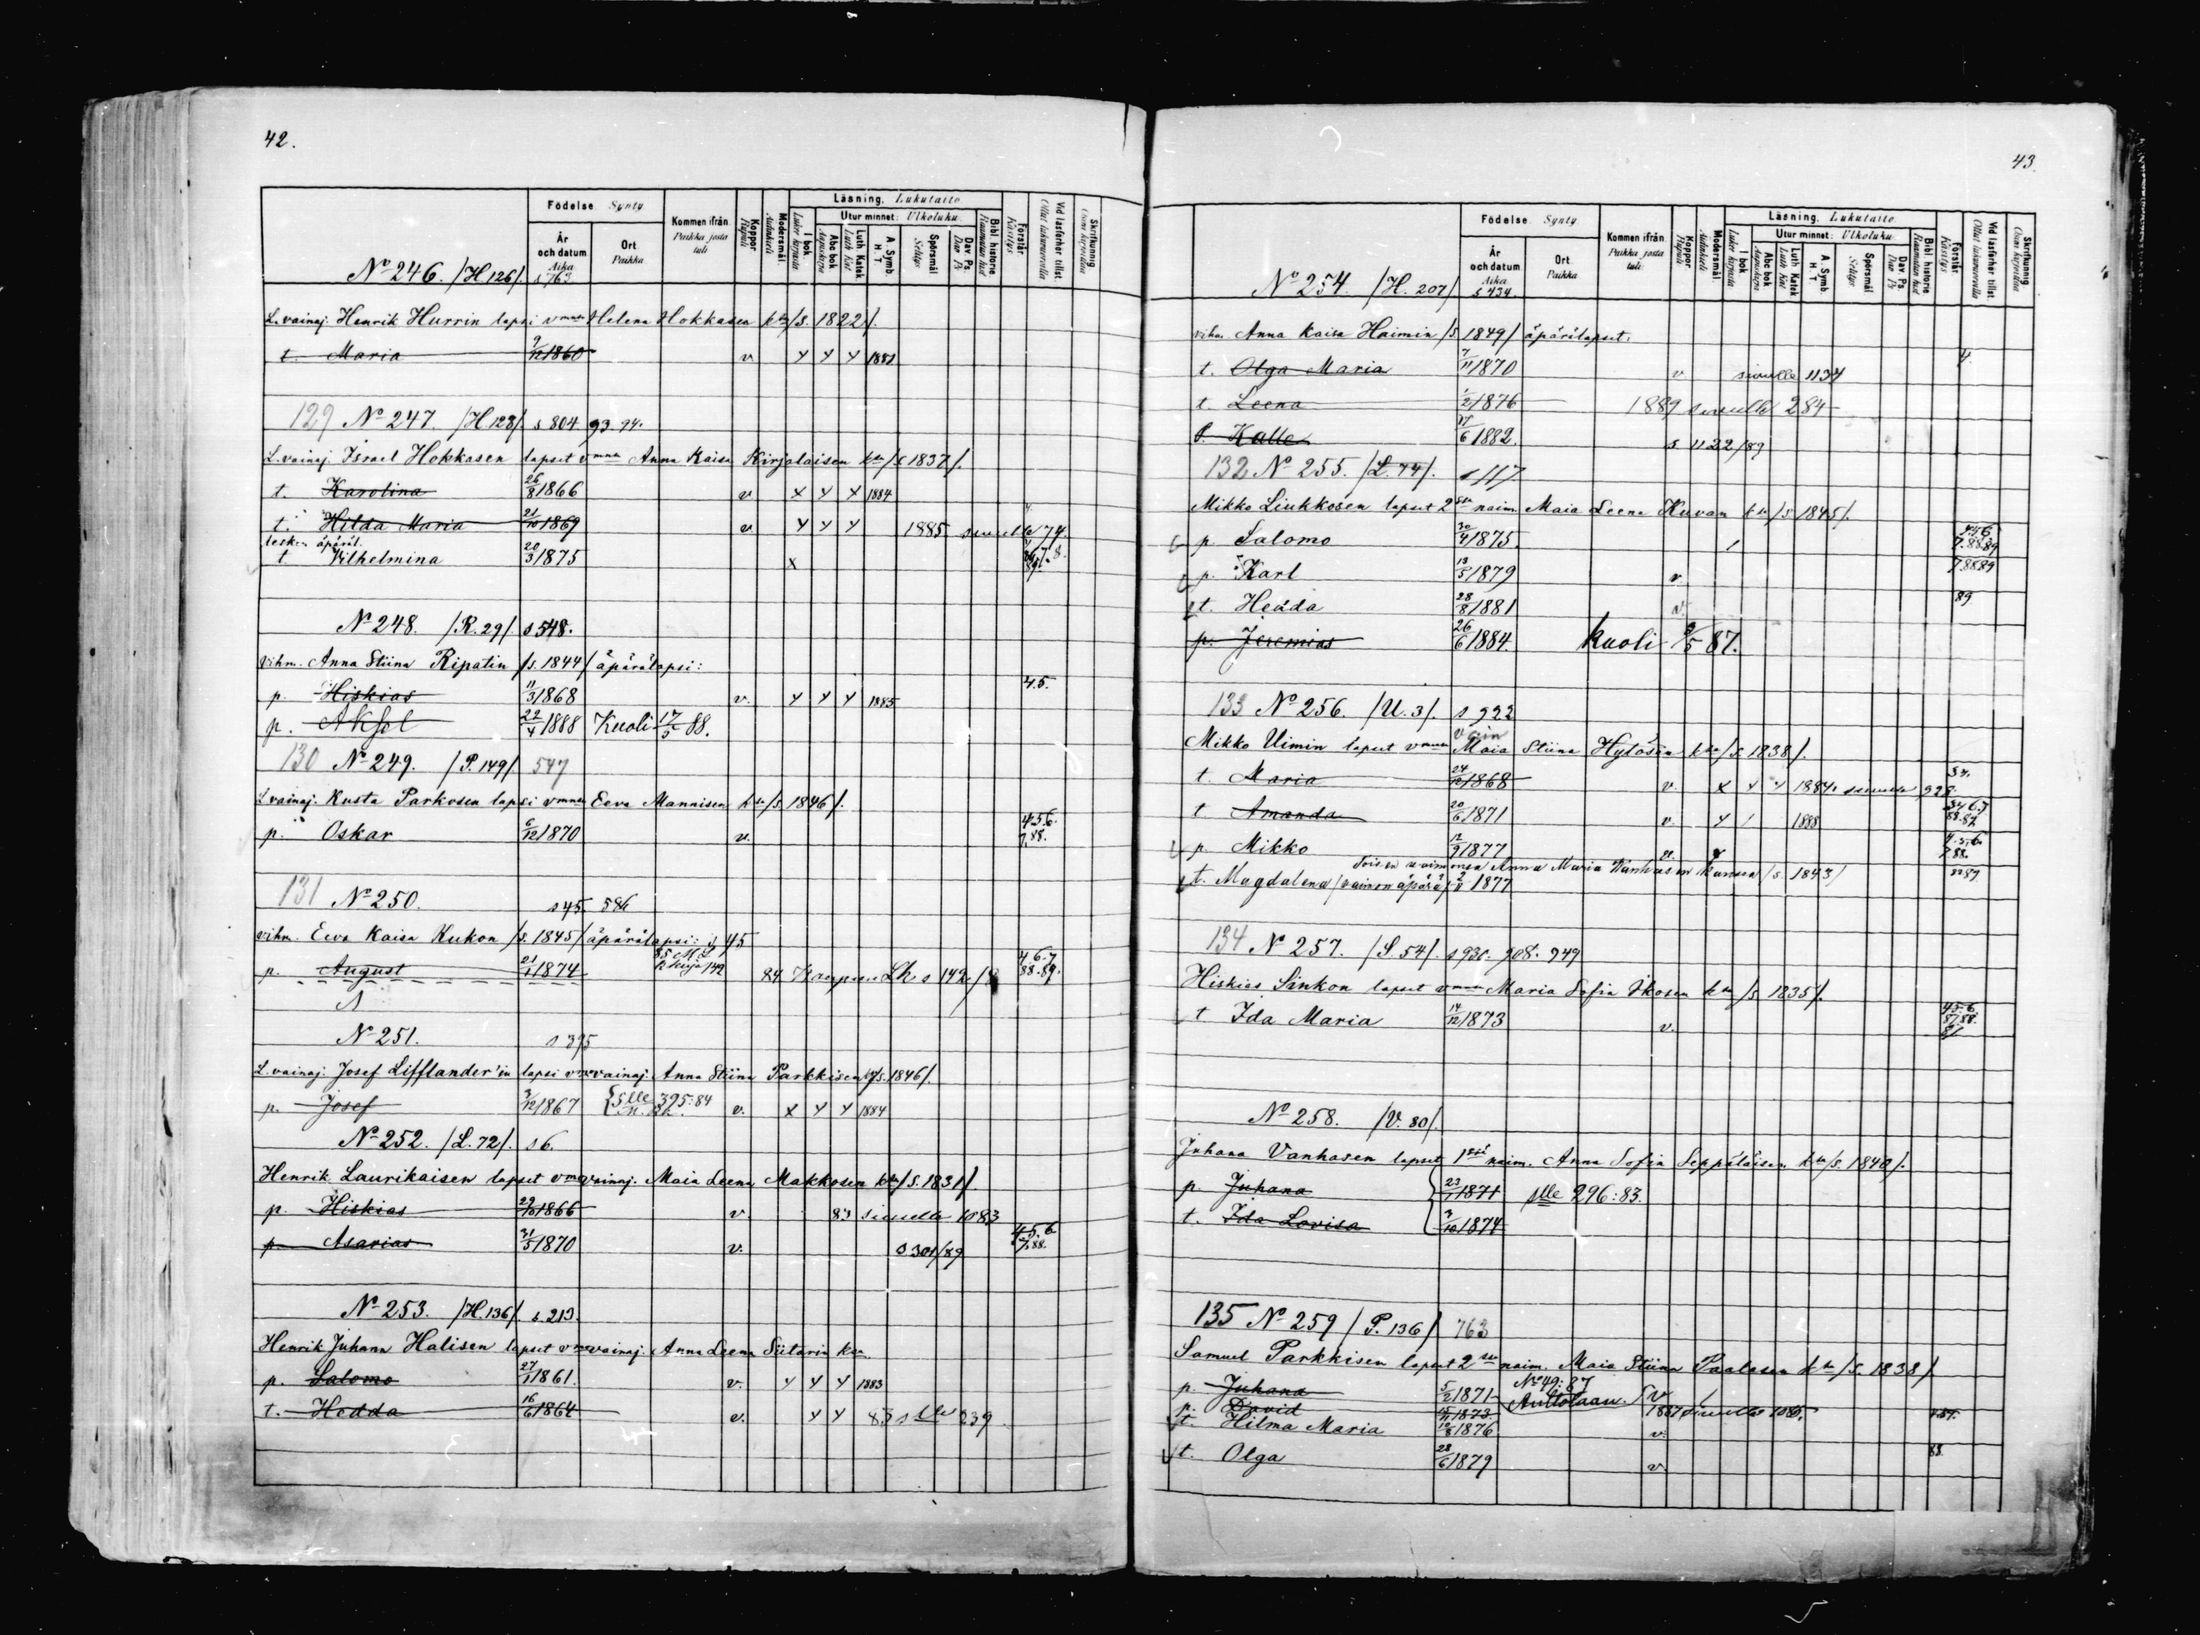 42.
Födelse. Synty
Kommen ifrån Paikka josta tuli
Koppor Rupuli
Modersmål. Äidinkieli
Läsning. Lukutaito
Utur minnet: Ulkoluku
År och datum Aika
Ort Paikka
I bok
Abc bok Aapiskirja
Luth Katek Luth Kat
A. Symb. H. T.
Spörsmål Selitys
Dav. Ps. Dav Ps
Bibl. historie Raamatun hist
Förstår Käsitys
Vid läsförhör tillst.
Skrifkunnig
No 246. /H.126/. s 763
L. vainaj. Henrik Hurrin lapsi vmnn Helena Hokkasen kssa /s. 1822/.
t. Maria 9/12 1860 v. 1881
129 No 247. /H.128/. s 804 93.94.
L. vainaj. Israel Hokkasen lapset vmnn Anna Kaisa Kirjalaisen kssa /s 1837/.
t. Karolina 26/8 1866 v. x 1884
t. Hilda Maria 21/10 1869 v. 1885 sivulle 74.
lesken äpäräl.
t Vilhelmina 20/3 1875 x
No 248. /R.29/ s 548.
vihm. Anna Stiina Ripatin /s. 1844/ äpärälapsi:
p. Hiskias 11/3 1868 v. 1885 4.5.
p. Aksel 22/4 1888 Kuoli 17/5 88.
130 No 249. /P.149/ 547
L vainaj. Kusta Parkosen lapsi vmnn Eeva Mannisen kssa /s 1846/.
p. Oskar 6/12 1870 v. 4.5.6. 7.88.
131 No 250. s 45. 586
vihm. Eeva Kaisa Kukon /s. 1845/ äpärälapsi: s 45
p. August 21/1 1874 84 Lk s 142 4 6.7 88.89.
No 251. s 395
L. vainaj. Josef Lifflander'in lapsi vmn vainaj. Anna Stiina Parkkisen /s. 1846/.
p. Josef 3/12 1867 slle 395:84 v. x 1884
No 252. /L.72/. s 6.
Henrik Laurikaisen lapset vmn vainaj. Maia Leena Makkosen kssa /s. 1831/.
p. Hiskias 29/10 1866 v. 83 sivulle 1083
p. Asarias 31/5 1870 v. s 301/89 4.5.6. 7.88.
No 253. /H.136/. s. 213.
Henrik Juhana Halisen lapset vmn vainaj. Anna Leena Siitarin kssa
p. Salomo 27/1 1861. v. 1883
t. Hedda 16/6 1864 v. 83 s lle 239
43
Födelse. Synty
Kommen ifrån Paikka josta tuli
Koppor Rupuli
Modersmål. Äidinkieli
Läsning. Lukutaito
Utur minnet: Ulkoluku
År och datum Aika
Ort Paikka
I bok
Abc bok Aapiskirja
Luth Katek Luth Kat
A. Symb. H. T.
Spörsmål Selitys
Dav. Ps. Dav Ps
Bibl. historie Raamatun hist
Förstår Käsitys
Vid läsförhör tillst.
Skrifkunnig
No 254. /H. 207/ s 434.
vihm. Anna Kaisa Haimin /s. 1849/ äpärälapset:
t. Olga Maria 7/11 1870 v sivulle 1134 4.
t. Leena 1/2 1876 1889 sivulle 284
p. Kalle 17/6 1882. s 1122/89
132 No 255. /L.74/. s 117.
Mikko Liukkosen lapset 2 naim. Maia Leena Kuvan kssa /s 1845/.
p. Salomo 30/4 1875.
p. Karl 13/5 1879 v. 7.88 89
t. Hedda 28/8 1881 v 89
p. Jeremias 26/6 1884. kuoli 3/5 87.
133 No 256. /U.3/. s 922
Mikko Uimin lapset vmnn Maia Stiina Hytösen kssa /s. 1838/.
t. Maria 24/12 1868 v. x 1884. sivulle 928. 34.
t. Amanda 20/6 1871 v. 1888
p. Mikko 12/9 1877 v. 4.5.6. 7.88.
Toisen vaimonsa Anna Maria Vanhasen kanssa /s. 1843/
t. Magdalena /vaimon äpärä/ 1877
134 No 257. /S.54/. s 930. 908. 949
Hiskias Sinkon lapset vmnn Maria Sofia Ikosen kssa /s. 1835/.
t Ida Maria 14/12 1873 v. 4.5.6. 87.88.
No 258. /V. 80/.
Juhana Vanhasen lapset 1 naim. Anna Sofia Seppäläisen kssa /s. 1840/.
p. Juhana 23/1 1871 slle 296:83.
t. Ida Lovisa 3/10 1874
135 No 259 /P.136/ 763
Samuel Parkkisen lapset 2 naim. Maia Stiina Paalasen kssa /s. 1838/
p. Juhana 5/2 1871 No 49:87 Anttolaan. v
p. David 1873. 1887 sivulle
t. Hilma Maria 12/8 1876 v.
t. Olga 28/6 1879 v. 88.